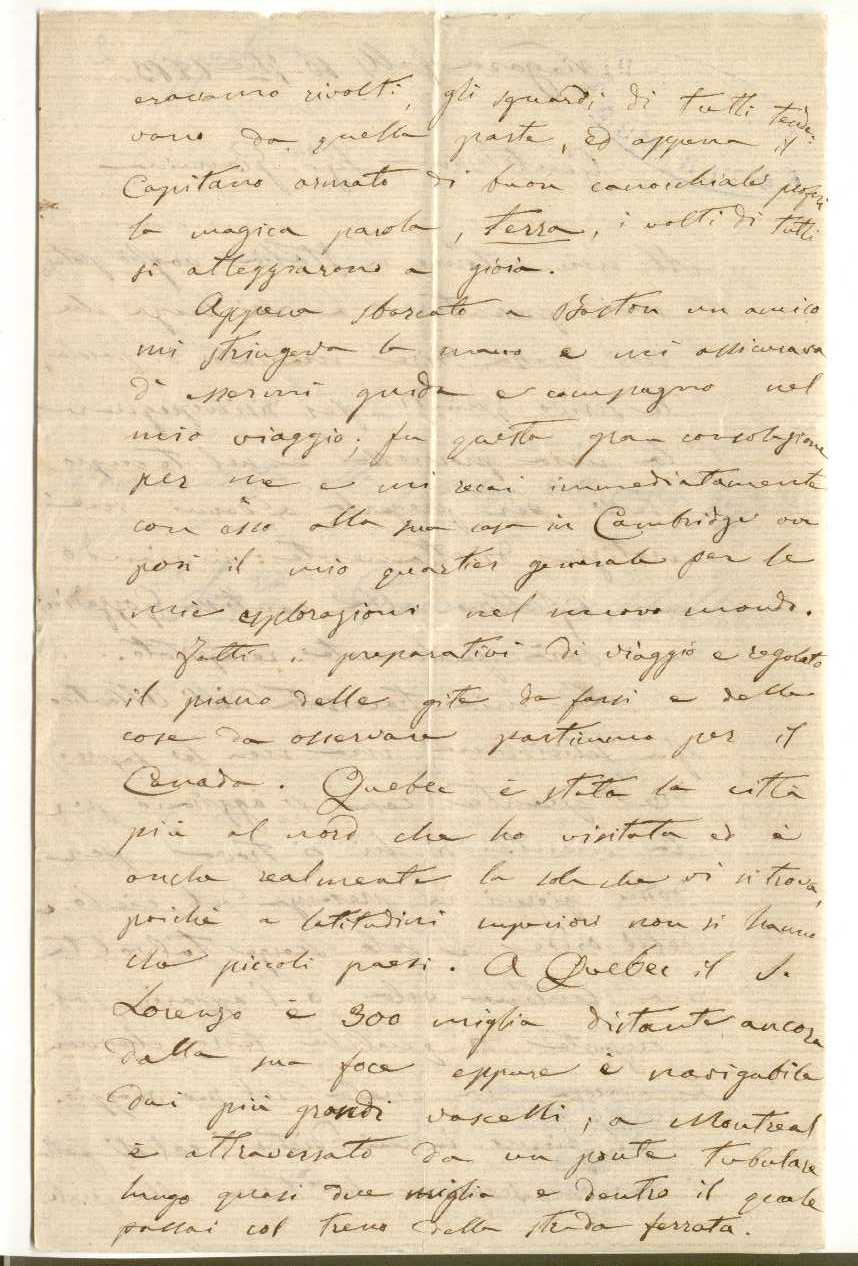 eravamo rivolti, gli sguardi di tutti tende-
vano da quella parte, ed appena il
Capitano armato di buon canocchiale proferì
la magica parola, terra, i volti di tutti
si atteggiarono a gioia.
Appena sbarcato a Boston un amico
mi stringeva la mano e mi assicurava
di essermi guida e compagno nel
mio viaggio; fu questa gran consolazione
per me e mi recai immediatamente
con esso alla sua casa in Cambridge ove
posi il mio quartier generale per le
mie esplorazioni nel nuovo mondo.
Fatti i preparativi di viaggio e regolato
il piano delle gite da farsi e delle
cose da osservare partimmo per il
Canada. Quebec è stata la città
più al nord che ho visitata ed è
anche realmente la sola che vi si trova,
poichè a latitudini superiori non si hanno
che piccoli paesi. A Quebec il S.
Lorenzo è 300 miglia distante ancora
dalla sua foce eppure è navigabile
dai più grandi vascelli; a Montreal
è attraversato da un ponte tubulare
lungo quasi due miglia e dentro il quale
passai col treno della strada ferrata.